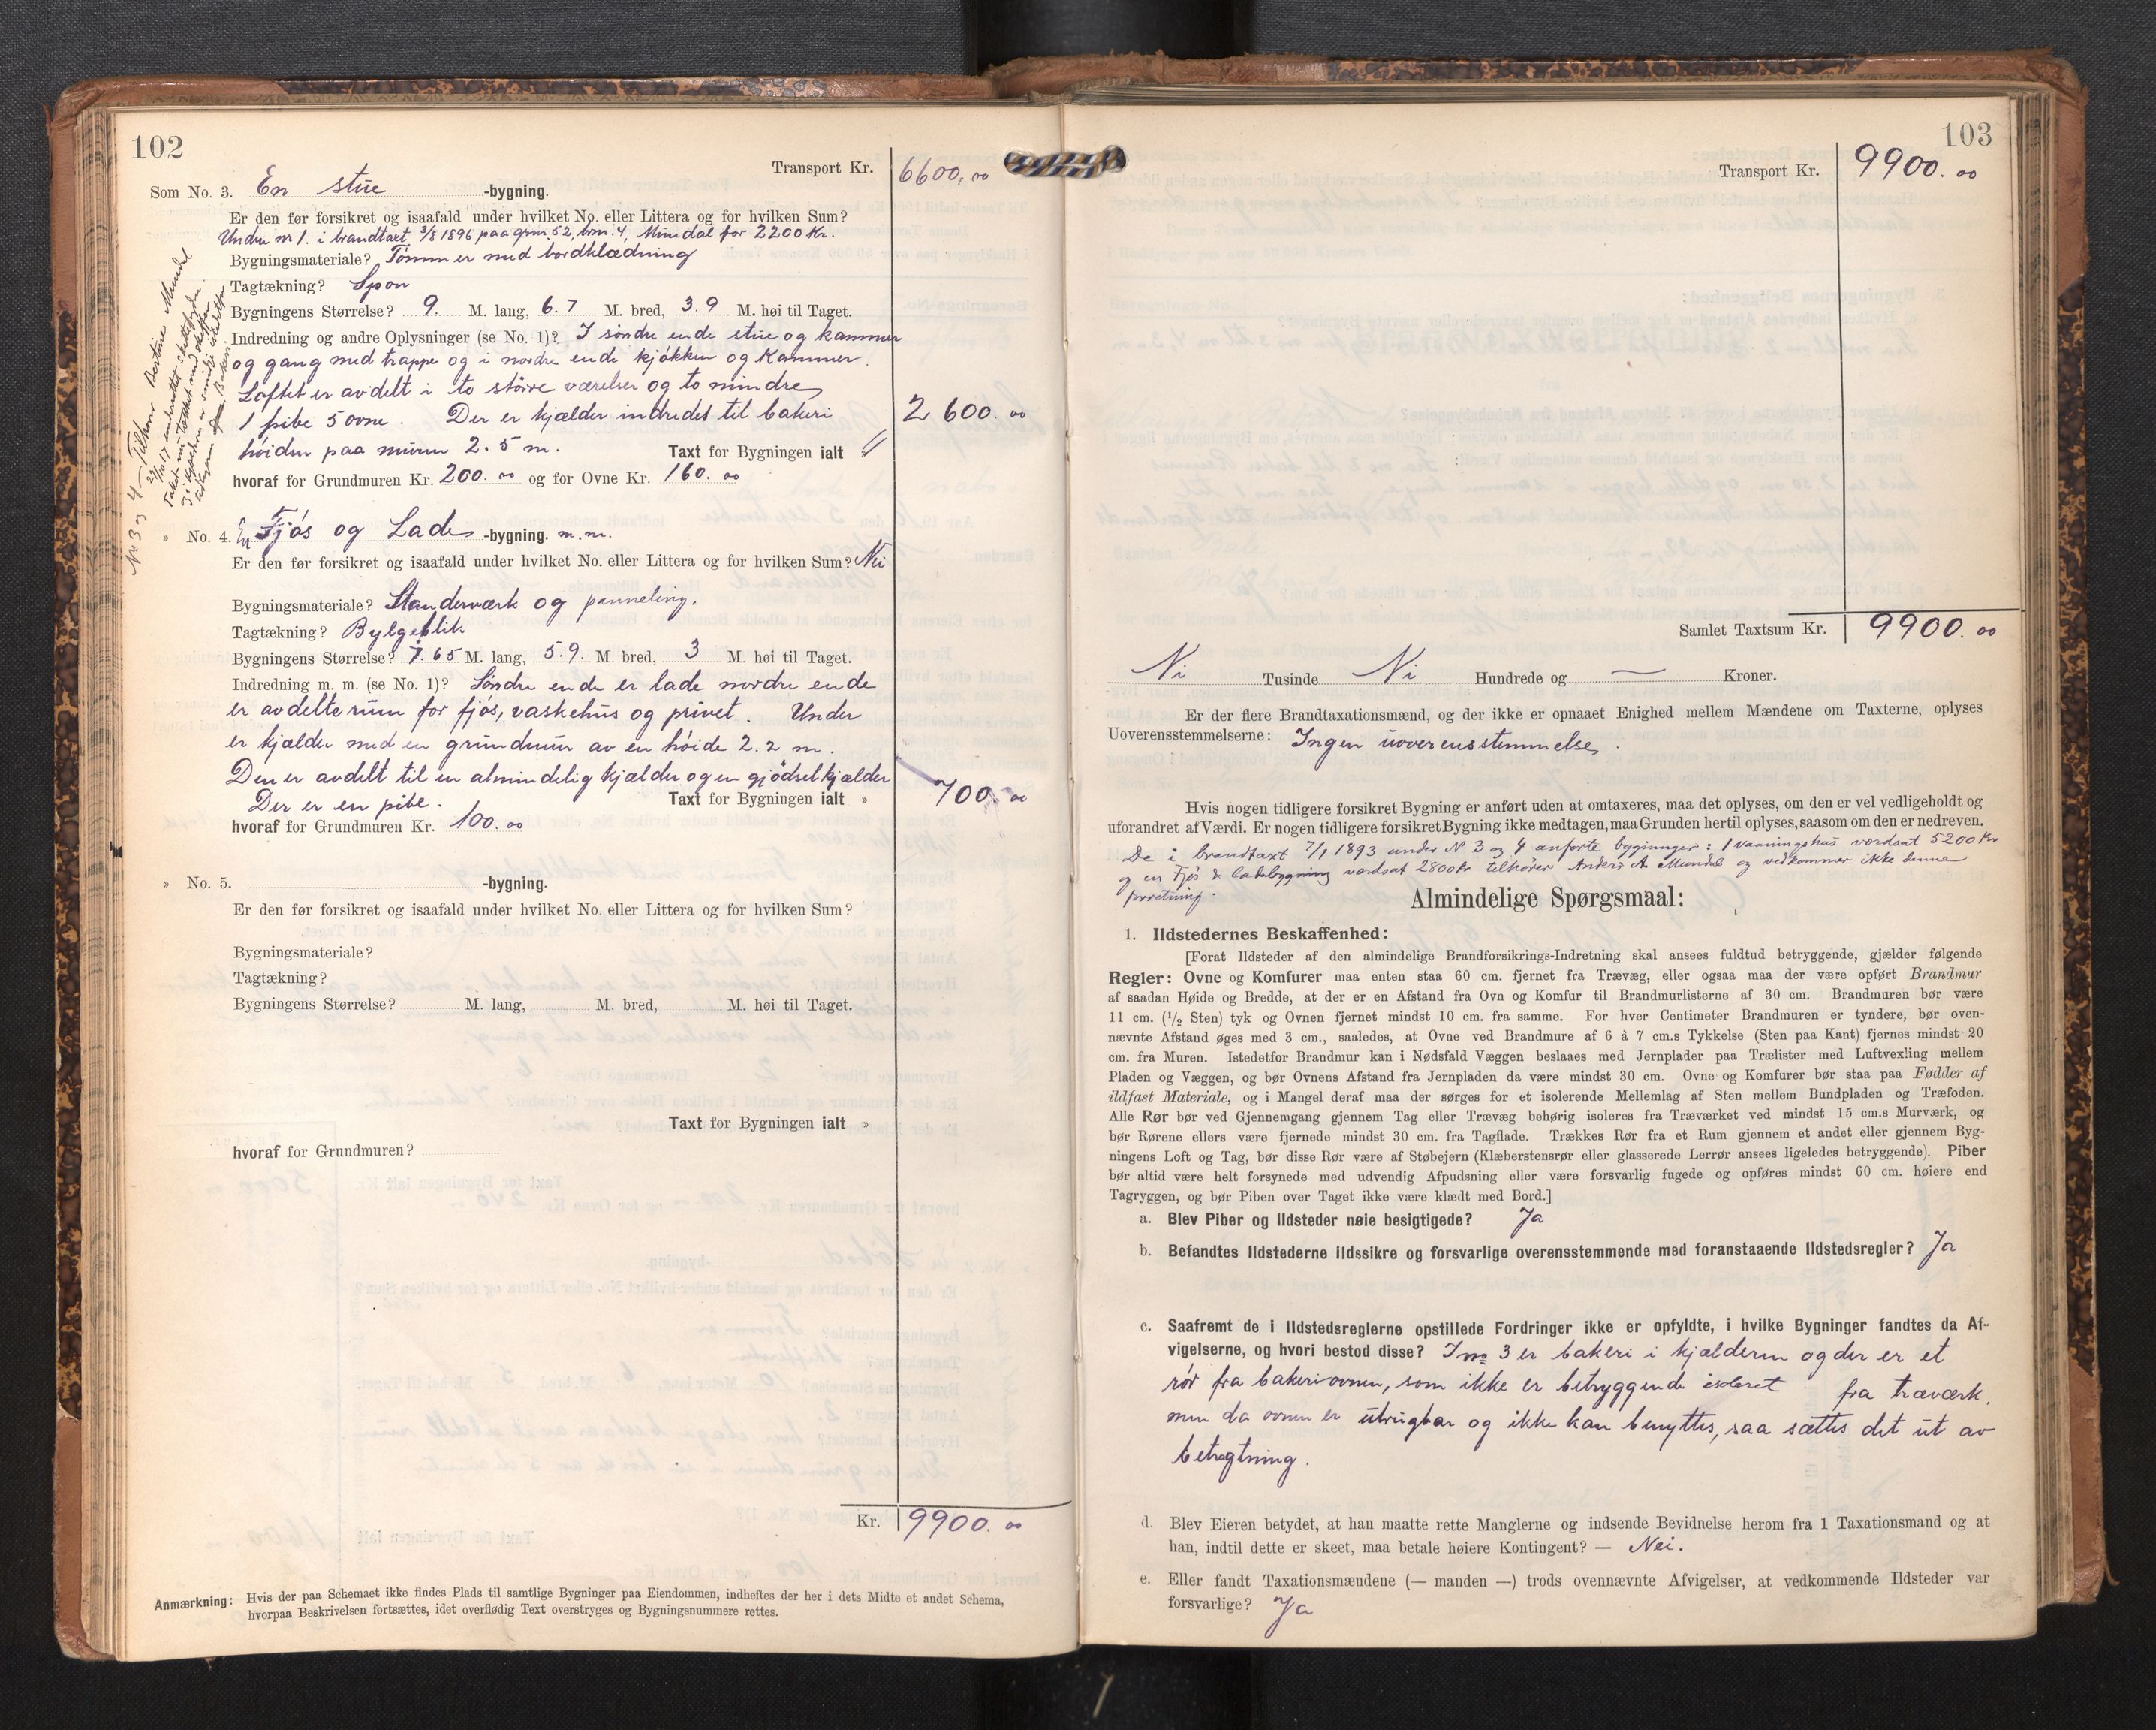 102
Transport Kr. 6600,00
Som No. 3. En stue -bygning.
Er den før forsikret og isaafald under hvilket No. eller Littera og for hvilken Sum?
Under nr 1. i brandtaxt 3/8 1896 paa grm. 52, brn. 4, Mundal for 2200 Kr.
Bygningsmateriale? Tømmer med bordklædning
Tagtækning? Spon
Bygningens Størrelse? 9. M. lang, 6.7 M. bred, 3.9 M. høi til Taget.
Indredning og andre Oplysninger (se No. 1)? I søndre ende stue og kammer
og gang med trappe og i nordre ende kjøkken og Kammer.
Loftet er avdelt i to større værelser og to mindre
1 pibe 5 ovne. Der er kjælder indredet til bakeri 2600.00
høiden paa muren 2.5 m. Taxt for Bygningen ialt "
hvoraf for Grundmuren Kr. 200.00 og for Ovne Kr. 160.00
Nr 3 og 4 Tilhører Mundal
» No. 4. En Fjøs og Lade -bygning. m.m.
Er den før forsikret og isaafald under hvilket No. eller Littera og for hvilken Sum? Nei
Bygningsmateriale? Standerværk og panneling.
Tagtækning? Bylgeblik
Bygningens Størrelse? 7.65 M. lang, 5.9. M. bred, 3 M. høi til Taget.
Indredning m. m. (se No. 1)? Søndre ende er lade nordre ende
er avdelte rum for fjøs, vaskehus og privet. Under
er kjælder med en grundmur av en høide 2.2 m.
Den er avdelt til en almindelig kjælder og en gjødselkjælder
Der er en pibe. Taxt for Bygningen ialt » 700.00
hvoraf for Grundmuren Kr. 100.00
» No. 5. -bygning.
Er den før forsikret og isaafald under hvilket No. eller Littera og for hvilken Sum?
Bygningsmateriale?
Tagtækning?
Bygningens Størrelse? M. lang, M. bred, M. høi til Taget.
Taxt for Bygningen ialt »
hvoraf for Grundmuren?
Kr. 9900.00
Anmærkning: Hvis der paa Schemaet ikke findes Plads til samtlige Bygninger paa Eiendommen, indheftes der her i dets Midte et andet Schema,
hvorpaa Beskrivelsen fortsættes, idet overflødig Text overstryges og Bygningsnummere rettes.
103
Transport Kr. 9900.00
Samlet Taxtsum Kr. 9900.00
Ni Tusinde Ni Hundrede og — Kroner.
Er der flere Brandtaxationsmænd, og der ikke er opnaaet Enighed mellem Mændene om Taxterne, oplyses
Uoverensstemmelserne: Ingen uoverensstemmelse.
Hvis nogen tidligere forsikret Bygning er anført uden at omtaxeres, maa det oplyses, om den er vel vedligeholdt og
uforandret af Værdi. Er nogen tidligere forsikret Bygning ikke medtagen, maa Grunden hertil oplyses, saasom om den er nedreven.
De i brandtaxt 7/1 1893 under N 3 og 4 anførte bygninger: 1 vaaningshus værdsat 5200 Kr
og en Fjøs & ladebygning værdsat 2800 kr tilhører Anders A. Mundal og vedkommer ikke denne
forretning.
Almindelige Spørgsmaal:
1. Ildstedernes Beskaffenhed:
[Forat Ildsteder af den almindelige Brandforsikrings-Indretning skal ansees fuldtud betryggende, gjælder følgende
Regler: Ovne og Komfurer maa enten staa 60 cm. fjernet fra Trævæg, eller ogsaa maa der være opført Brandmur
af saadan Høide og Bredde, at der er en Afstand fra Ovn og Komfur til Brandmurlisterne af 30 cm. Brandmuren bør være
11 cm. (1/2 Sten) tyk og Ovnen fjernet mindst 10 cm. fra samme. For hver Centimeter Brandmuren er tyndere, bør oven-
nævnte Afstand øges med 3 cm., saaledes, at Ovne ved Brandmure af 6 à 7 cm.s Tykkelse (Sten paa Kant) fjernes mindst 20
cm. fra Muren. Istedetfor Brandmur kan i Nødsfald Væggen beslaaes med Jernplader paa Trælister med Luftvexling mellem
Pladen og Væggen, og bør Ovnens Afstand fra Jernpladen da være mindst 30 cm. Ovne og Komfurer bør staa paa Fødder af
ildfast Materiale, og i Mangel deraf maa der sørges for et isolerende Mellemlag af Sten mellem Bundpladen og Træfoden.
Alle Rør bør ved Gjennemgang gjennem Tag eller Trævæg behørig isoleres fra Træværket ved mindst 15 cm.s Murværk, og
bør Rørene ellers være fjernede mindst 30 cm. fra Tagflade. Trækkes Rør fra et Rum gjennem et andet eller gjennem Byg-
ningens Loft og Tag, bør disse Rør være af Støbejern (Klæberstensrør eller glasserede Lerrør ansees ligeledes betryggende). Piber
bør altid være helt forsynede med udvendig Afpudsning eller være forsvarlig fugede og opføres mindst 60 cm. høiere end
Tagryggen, og bør Piben over Taget ikke være klædt med Bord.]
a. Blev Piber og Ildsteder nøie besigtigede? Ja
b. Befandtes Ildstederne ildssikre og forsvarlige overensstemmende med foranstaaende Ildstedsregler? Ja
c. Saafremt de i Ildstedsreglerne opstillede Fordringer ikke er opfyldte, i hvilke Bygninger fandtes da Af-
vigelserne, og hvori bestod disse? I no 3 er bakeri i kjælderen og der er et
rør fra bakeriovnen, som ikke er betryggende isoleret fra træværk.
men da ovnen er ubrugbar og ikke kan benyttes, saa sættes det ut av
betragtning.
d. Blev Eieren betydet, at han maatte rette Manglerne og indsende Bevidnelse herom fra 1 Taxationsmand og at
han, indtil dette er skeet, maa betale høiere Kontingent? — Nei.
e. Eller fandt Taxationsmændene (— manden —) trods ovennævnte Afvigelser, at vedkommende Ildsteder var
forsvarlige? Ja